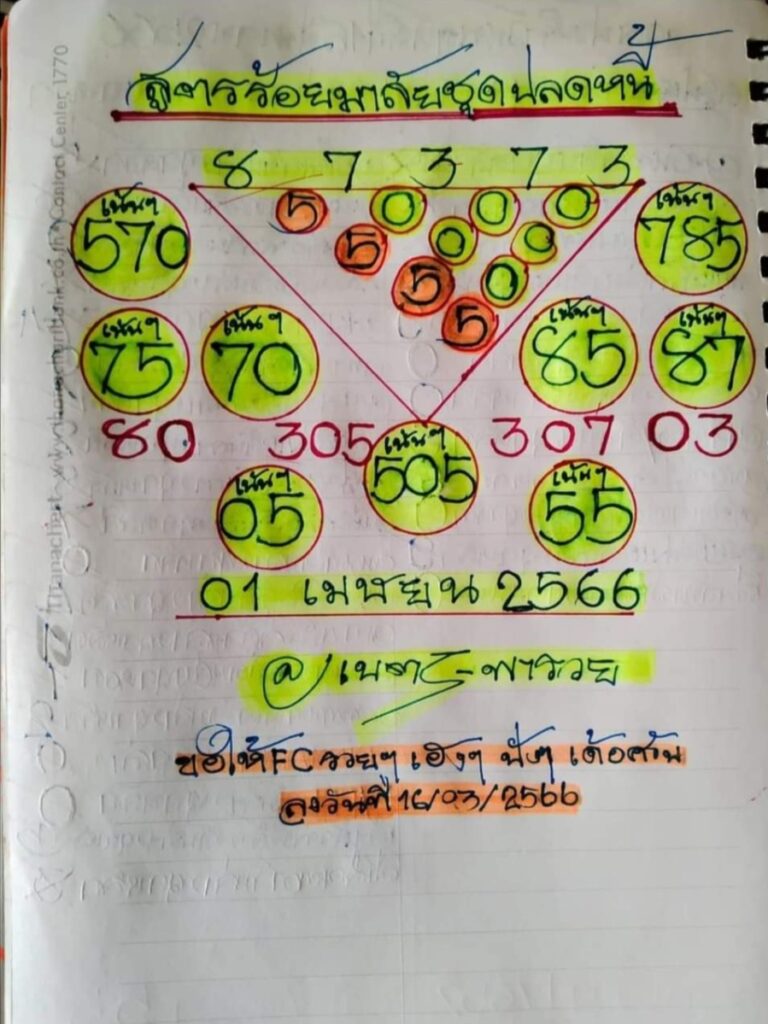 สูตรร้อยมาลัยชุดปลดหนี้
8 7 3 7 3
5 0 0 0
5 0 0
5 0
5
เน้นๆ 570
เน้นๆ 785
เน้นๆ 75
เน้นๆ 70
เน้นๆ 85
เน้นๆ 87
80 305 เน้นๆ 505 307 03
เน้นๆ 05
เน้นๆ 55
01 เมษายน 2566
ขอให้ FC รวยๆ เฮงๆ ปังๆ เด้อครับ
ลงวันที่ 16/03/2566
Contact Center 1770